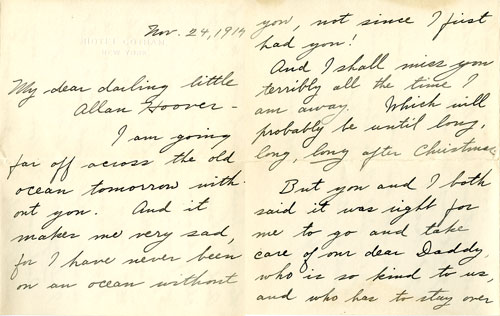 HOTEL GOTHAM
NEW YORK
Nov. 24, 1914
My dear darling little
Allan Hoover -
I am going
far off across the old
ocean tomorrow with-
out you. And it
makes me very sad,
for I have never been
on an ocean without
you, not since I first
had you!
And I shall miss you
terribly all the time I
am away. Which will
probably be until long,
long, long after Christmas.
But you and I both
said it was right for
me to go and take
care of our dear Daddy,
who is so kind to us,
and who has to stay over